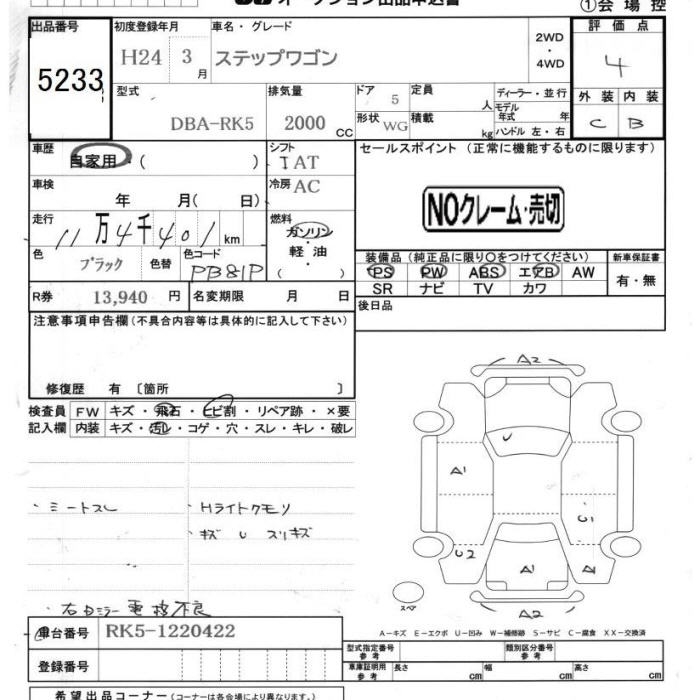 オークション出品申込書
①会場控
出品番号
5233
初度登録年月
H24 3月
車名・グレード
ステップワゴン
2WD
・
4WD
評価点
4
外装 内装
C B
型式
DBA-RK5
排気量
2000 CC
ドア 5
形状 WG
定員 人
積載 kg
ディーラー・並行
モデル年式 年
ハンドル 左・右
車歴
自家用・( )
シフト
IAT
車検
年 月( 日)
冷房 AC
走行
11万4千401km
燃料
ガソリン
・
軽油
( )
色
ブラック
色替
色コード
PB81P
R券 13,940 円
名変期限 月 日
セールスポイント (正常に機能するものに限ります)
NOクレーム・売切
装備品 (純正品に限り○をつけてください)
PS PW ABS エアB AW
SR ナビ TV カワ
新車保証書
有・無
後日品
注意事項申告欄 (不具合内容等は具体的に記入して下さい)
修復歴 有 〔箇所 〕
検査員記入欄
FW キズ・飛石・ヒビ割・リペア跡・×要
内装 キズ・汚レ・コゲ・穴・スレ・キレ・破レ
・Hライトクモリ
・キズ U スリキズ
右Dミラー電格不良
A2
U
A1
C1
C2
A1
A1
A2
スペア
A-キズ E-エクボ U-凹み W-補修跡 S-サビ C-腐食 XX-交換済
車台番号 RK5-1220422
登録番号
型式指定番号 参考
類別区分番号 参考
車庫証明用 参考
長さ cm
幅 cm
高さ cm
希望出品コーナー (コーナーは各会場により異なります。)